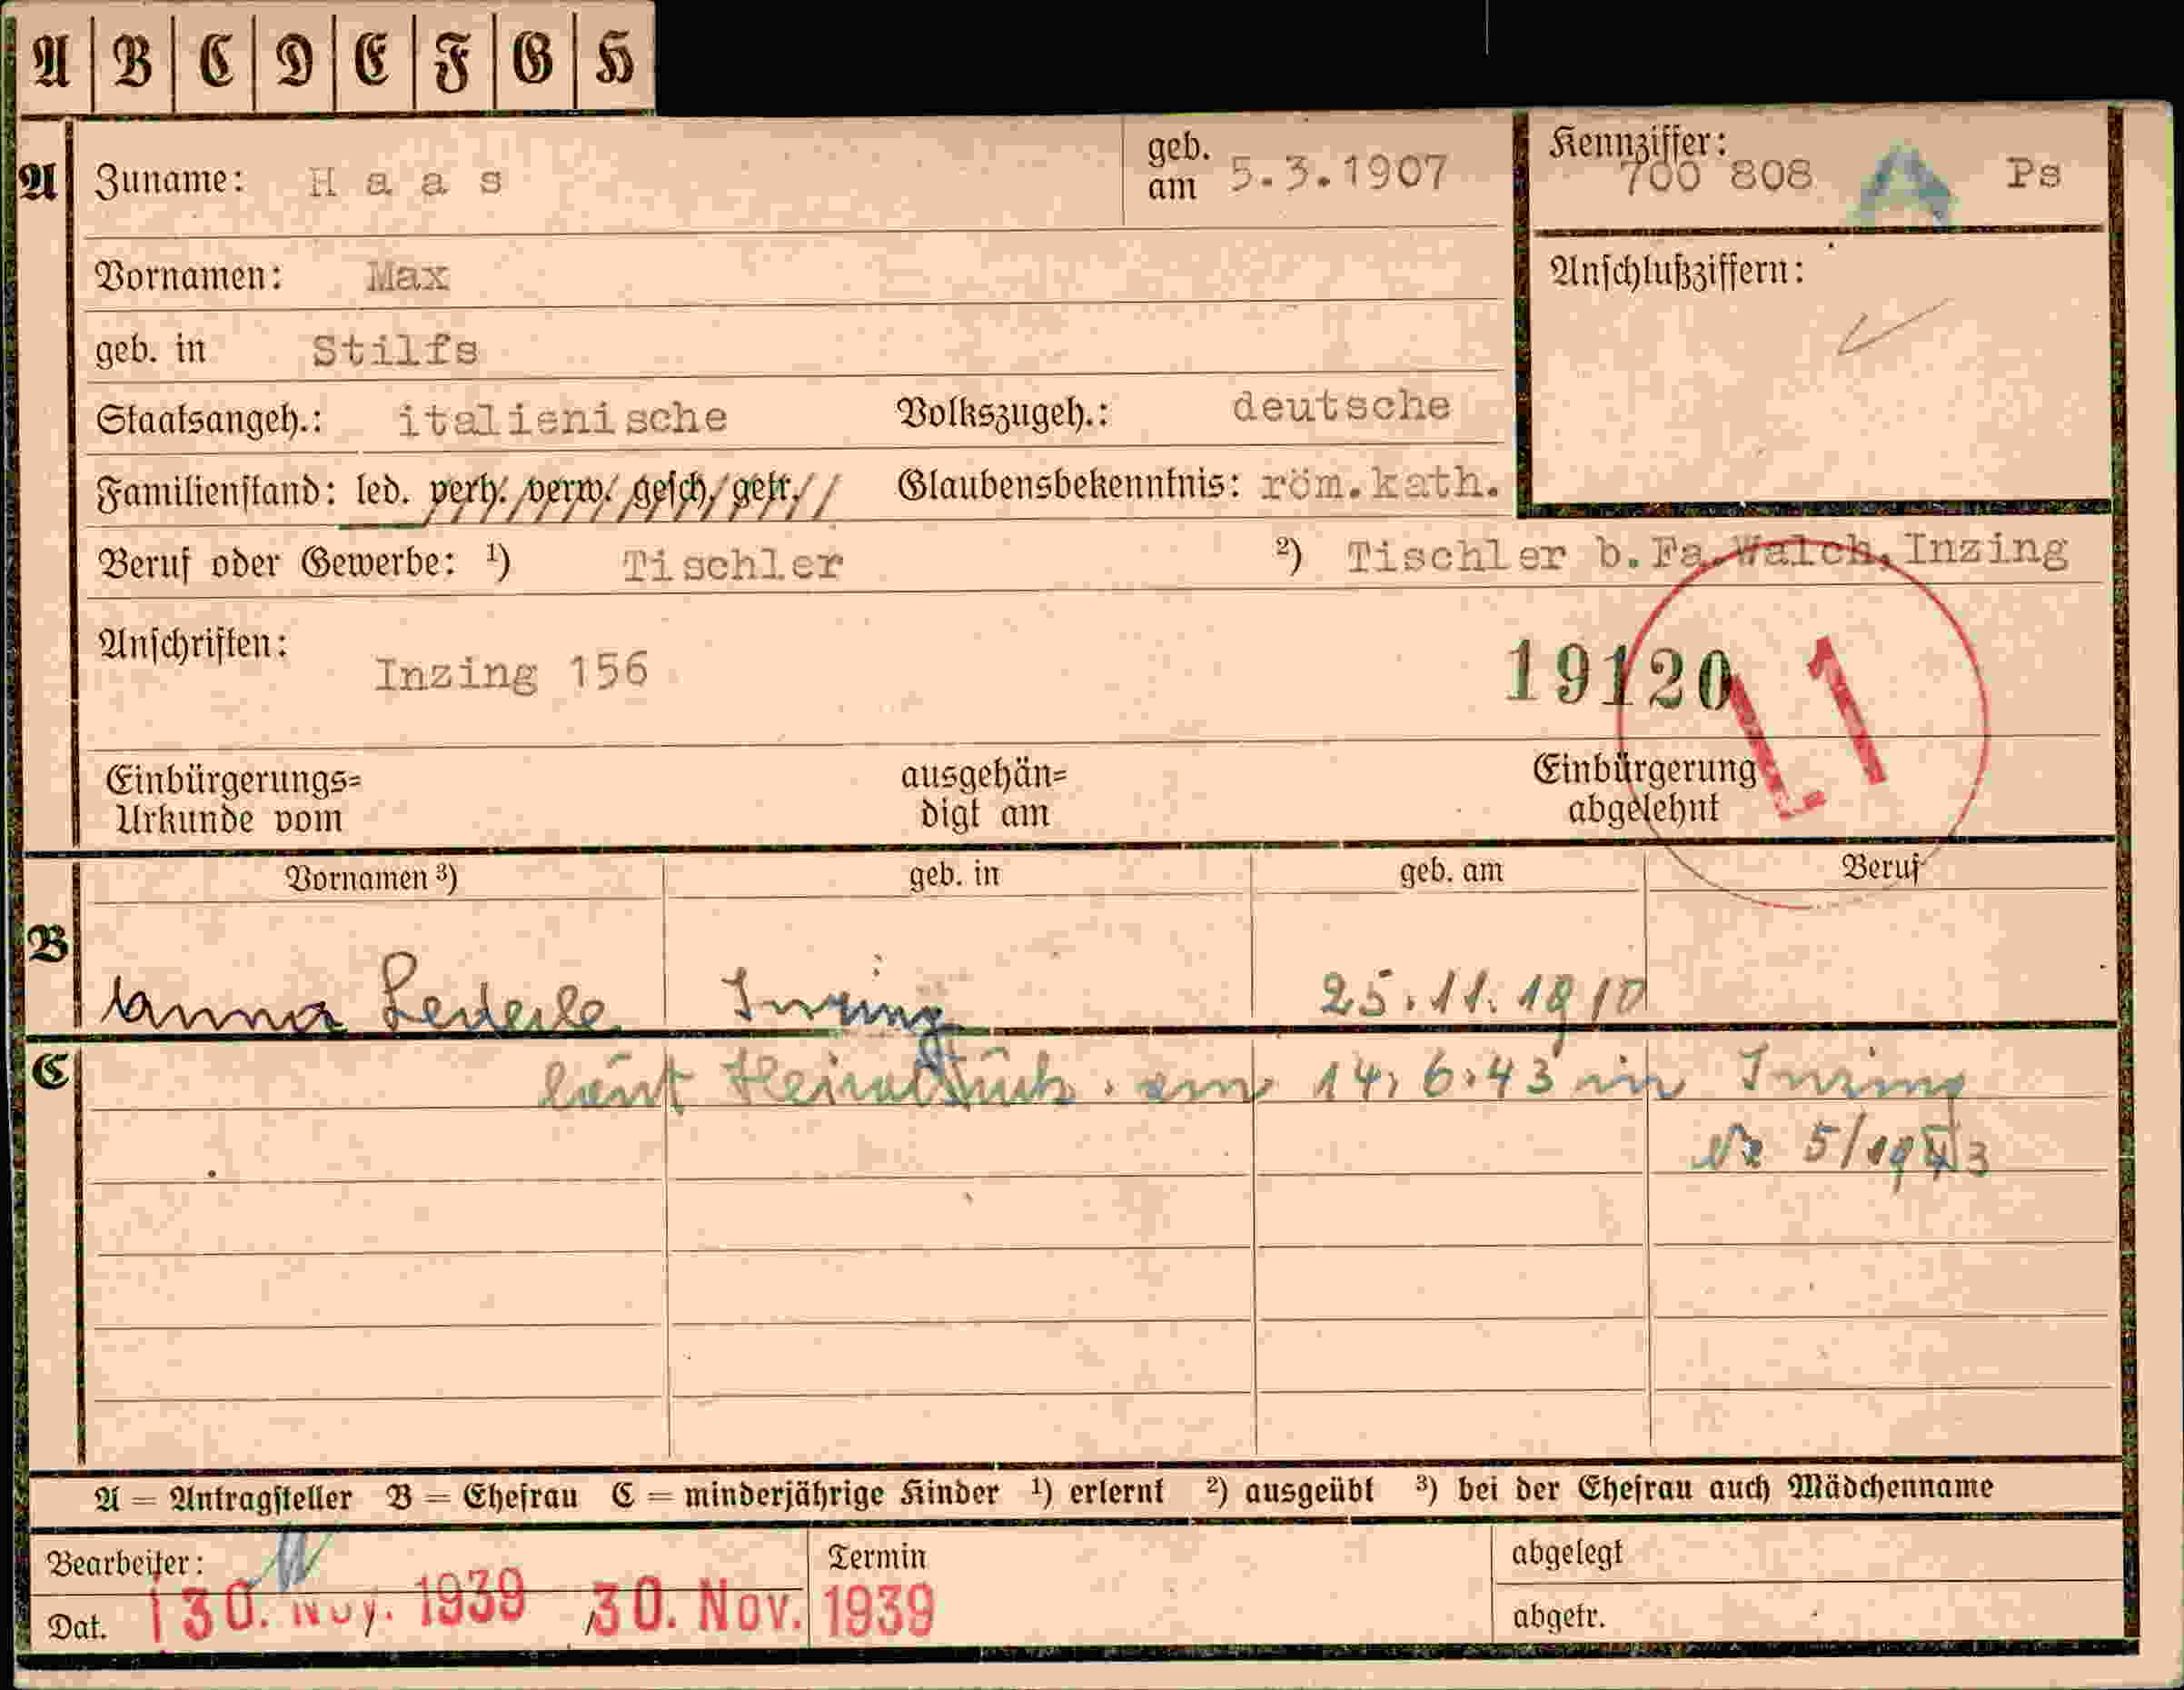 A B C D E F G H
A Zuname: Haas geb. am 5.3.1907 Kennziffer: 700 808 A Ps
Vornamen: Max Anschlußziffern:
geb. in Stilfs
Staatsangeh.: italienische Volkszugeh.: deutsche
Familienstand: led. verh. verw. gesch. getr. Glaubensbekenntnis: röm.kath.
Beruf oder Gewerbe: ¹) Tischler ²) Tischler b.Fa.Walch, Inzing
Anschriften: Inzing 156
19120
Einbürgerungs= Urkunde vom ausgehän= digt am Einbürgerung abgelehnt
Vornamen ³) geb. in geb. am Beruf
B Anna Lederle Inzing 25.11.1910
C laut Heiratsurk. am 14.6.43 in Inzing
Nr 5/1943
A = Antragsteller B = Ehefrau C = minderjährige Kinder ¹) erlernt ²) ausgeübt ³) bei der Ehefrau auch Mädchenname
Bearbeiter: Termin abgelegt
Dat. 30. Nov. 1939 30. Nov. 1939 abgetr.